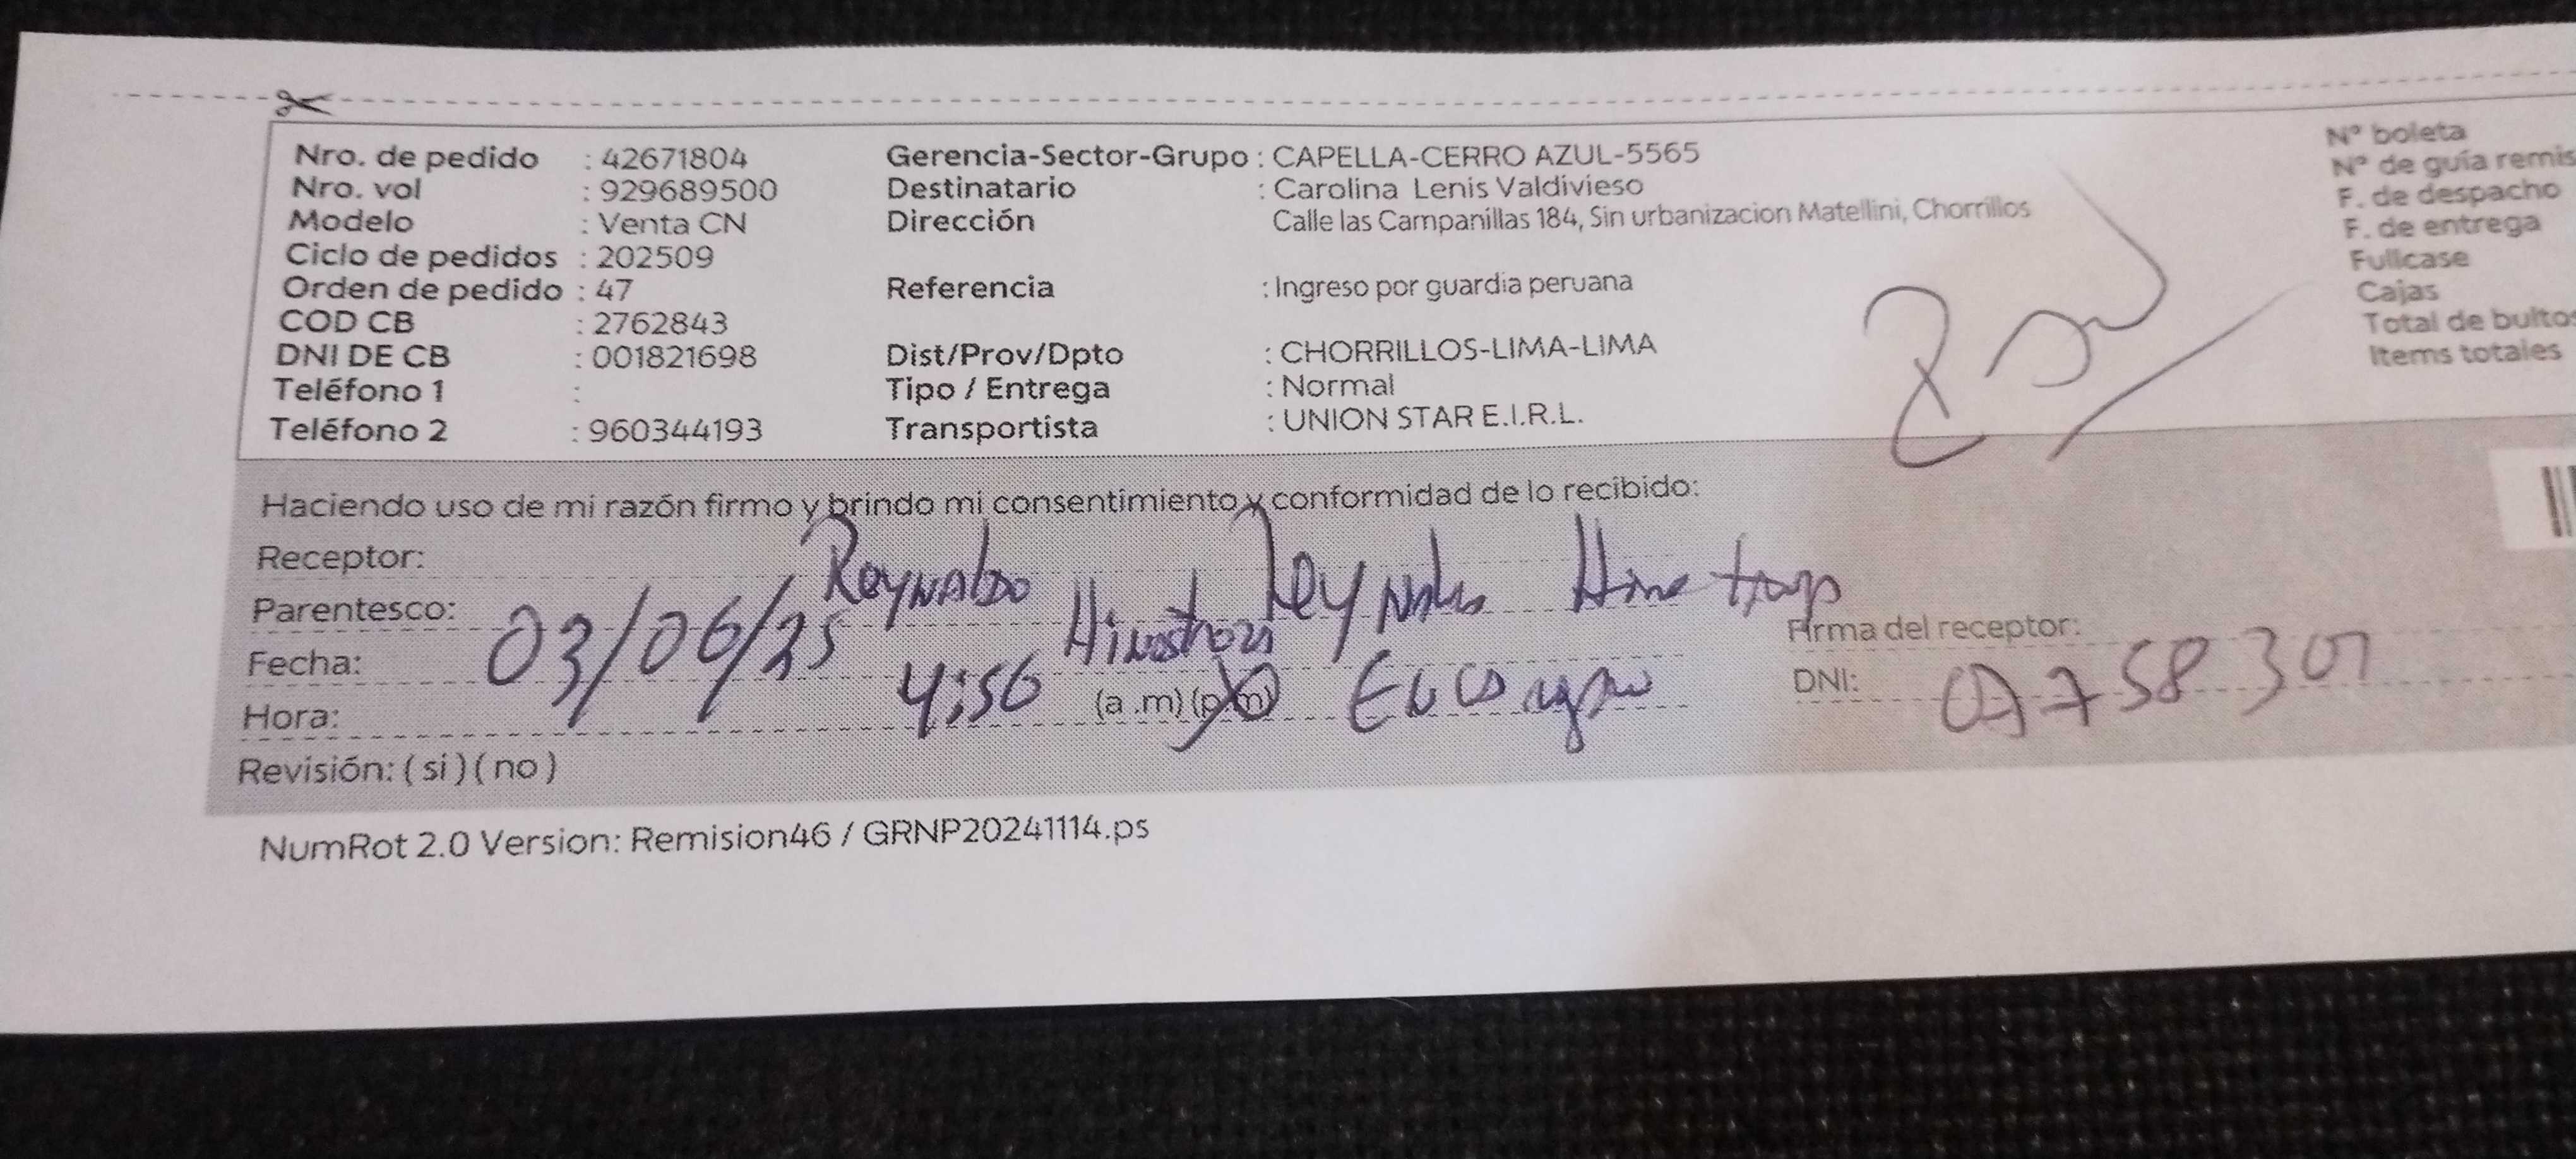 Nro. de pedido : 42671804 Gerencia-Sector-Grupo : CAPELLA-CERRO AZUL-5565 N° boleta
Nro. vol : 929689500 Destinatario : Carolina Lenis Valdivieso N° de guía remis
Modelo : Venta CN Dirección Calle las Campanillas 184, Sin urbanizacion Matellini, Chorrillos F. de despacho
Ciclo de pedidos : 202509 F. de entrega
Orden de pedido : 47 Referencia : Ingreso por guardia peruana Fullcase
COD CB : 2762843 Cajas
DNI DE CB : 001821698 Dist/Prov/Dpto : CHORRILLOS-LIMA-LIMA Total de bultos
Teléfono 1 : Tipo / Entrega : Normal Items totales
Teléfono 2 : 960344193 Transportista : UNION STAR E.I.R.L.
Haciendo uso de mi razón firmo y brindo mi consentimiento y conformidad de lo recibido:
Receptor: Reynaldo
Parentesco: Hinostroza
Firma del receptor:
Fecha: 03/06/25
DNI:
Hora: 4:56 (a .m) (p.m)
Revisión: ( si ) ( no )
NumRot 2.0 Version: Remision46 / GRNP20241114.ps